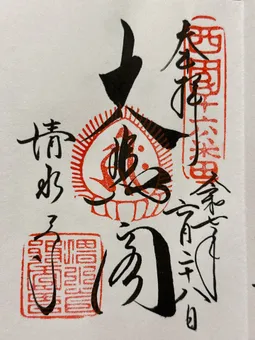 奉拝
西国十六番
令和七年
六月二十八日
大悲閣
清水寺